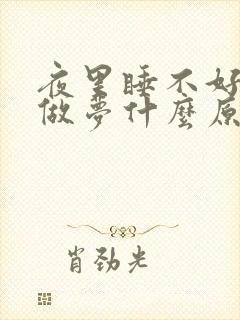 夜里睡不好
做梦什麽原
肖劲光